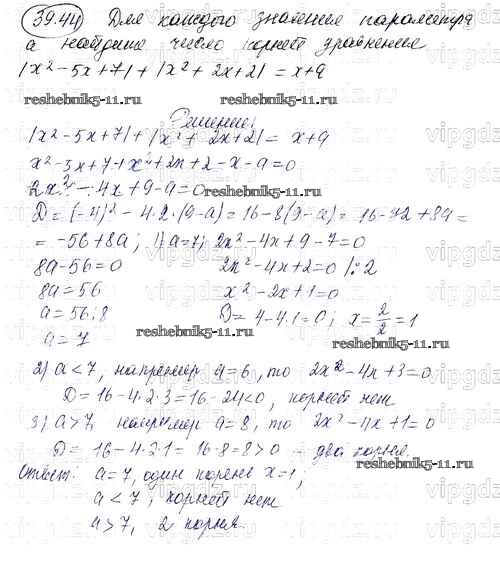 39.44 Для каждого значения параметра
а найдите число корней уравнения
|x² - 5x + 7| + |x² + 2x + 2| = x + a
reshebnik5-11.ru reshebnik5-11.ru
Решение:
|x² - 5x + 7| + |x² + 2x + 2| = x + a
x² - 5x + 7 + x² + 2x + 2 - x - a = 0
2x² - 4x + 9 - a = 0 reshebnik5-11.ru
D = (-4)² - 4·2·(9-a) = 16 - 8(9-a) = 16 - 72 + 8a =
= -56 + 8a; 1) a = 7; 2x² - 4x + 9 - 7 = 0
8a - 56 = 0 2x² - 4x + 2 = 0 |:2
8a = 56 x² - 2x + 1 = 0
a = 56:8 D = 4 - 4·1 = 0; x = 2/2 = 1
a = 7 reshebnik5-11.ru
2) a < 7, например a = 6, то 2x² - 4x + 3 = 0
D = 16 - 4·2·3 = 16 - 24 < 0, корней нет
3) a > 7, например a = 8, то 2x² - 4x + 1 = 0
D = 16 - 4·2·1 = 16 - 8 = 8 > 0 - два корня
reshebnik5-11.ru
Ответ: a = 7, один корень x = 1;
a < 7, корней нет
a > 7, 2 корня.